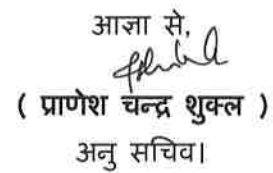 आज्ञा से,
( प्राणेश चन्द्र शुक्ल )
अनु सचिव।